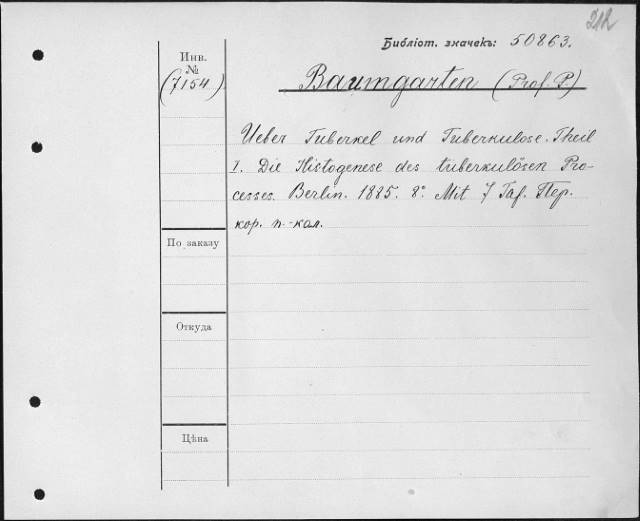 212
Библіот. значекъ: 50863.
Инв.
№
(7154)
Baumgarten (Prof. P)
Ueber Tuberkel und Tuberkulose. Theil
I. Die Histogenese des tuberkulösen Pro-
cesses. Berlin. 1885. 8°. Mit 7 Taf. Пер.
кор. п.-кал.
По заказу
Откуда
Цѣна